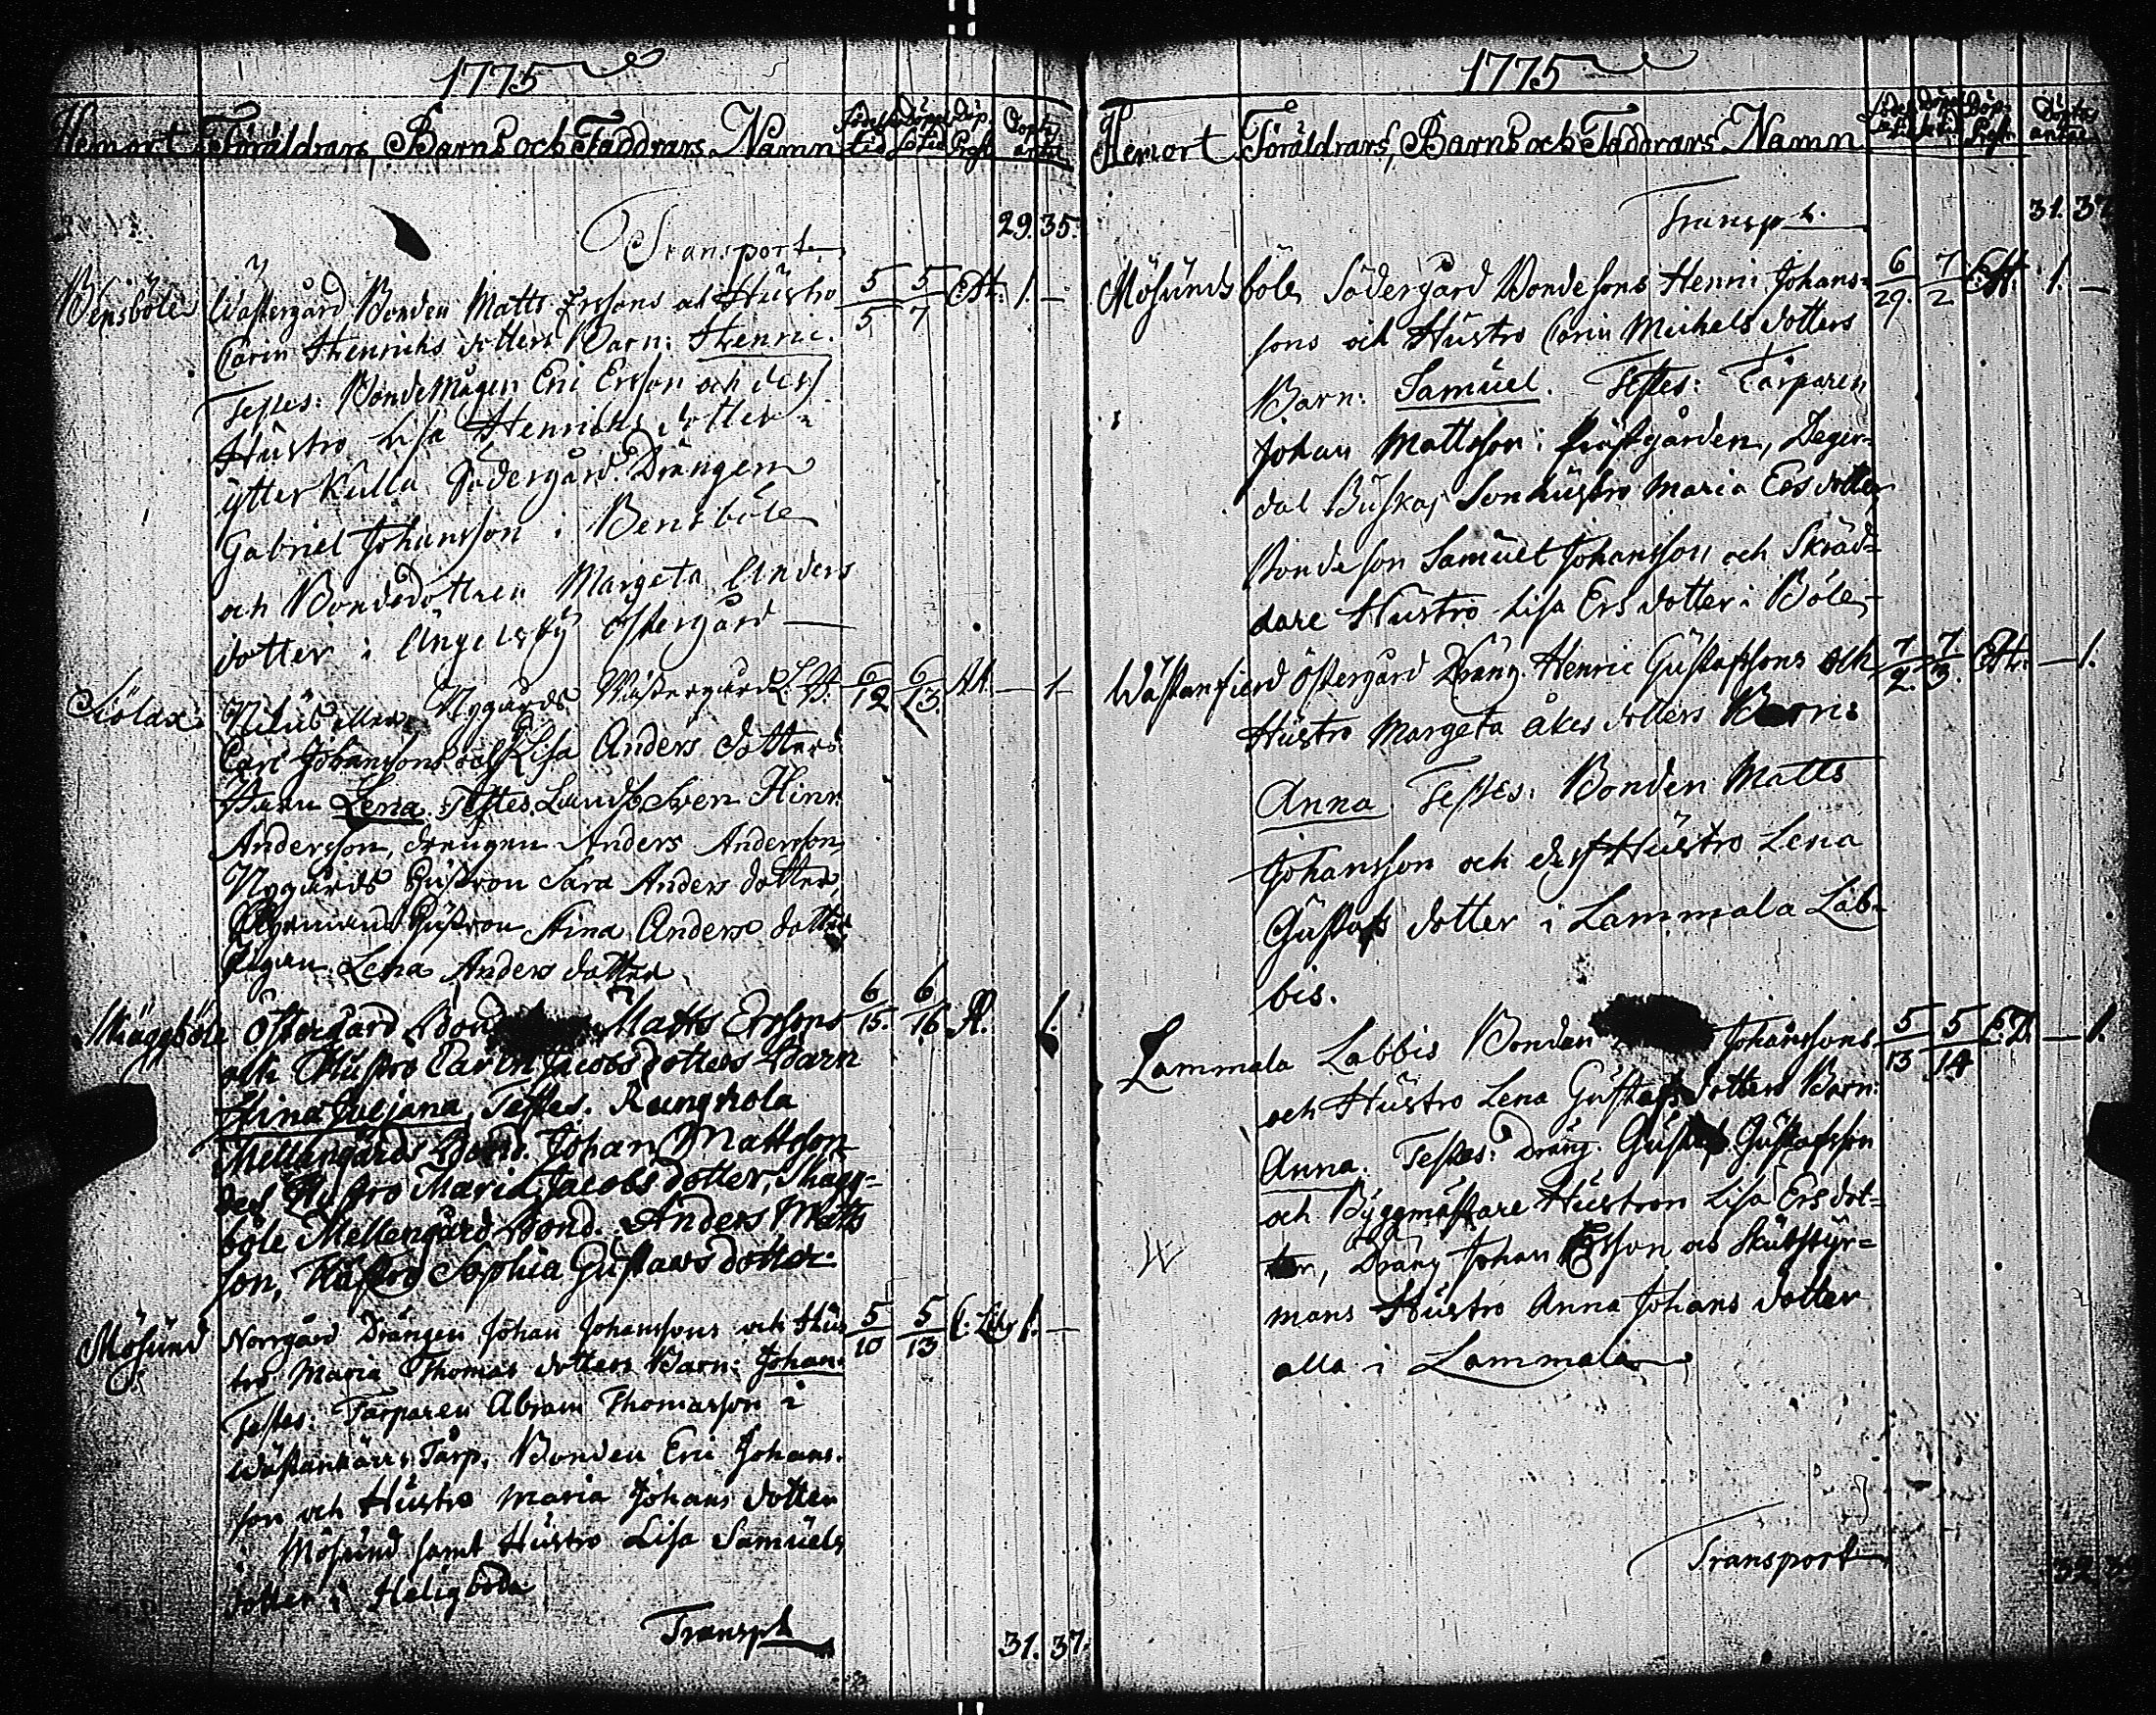 1775
Hemort Föräldrars, Barns och Faddrars Namn
Transport 29. 35.
Bensböle Wästergård Bonden Matts Erssons at Hüstro 5/5 5/7 1. —
Carin Henrichs dotters Barn: Henric.
Testes: Bonde Mågen Eric Ersson och dess
Hüstro Lisa Henrichs dotter i
ytterkulla Södergård. Drängen
Gabriel Johansson i Bensböle
och Bondedottren Margeta Anders
dotter i Engelsby Östergård —
Nygårds 6/12 6/13 — 1
Carl Johanssons och Lisa Anders dotters
Barn Lena. Testes. Hinr.
Andersson, drengen Anders Andersson
Nygårds Hustron Sara Anders dotter,
Hustron Stina Anders dotter
Pigan Lena Anders dotter
Skäggböle Östergård Matts Erssons 6/15. 6/16 1.
och Hustro Carin Jacobs dotters Barn
Stina Juljana. Testes. Rungnola
Mellangårds Bond. Johan Mattsson
des Hustro Maria Jacobs dotter, Skägg=
böle Mellangård Bond. Anders Matts
son, Hustro Sophia Gustaws dotter.
Mösund Norrgård Drängen Johan Johanssons och Hüs 5/10 5/13 1. —
tro Maria Thomas dotters Barn: Johan.
Testes: Tårparen Abram Thomasson i
Wästankärr Tårp, Bonden Eric Johans.
son och Hüstro Maria Johans dotter
i Mösund samt Hüstro Lisa Samüels
dotter i Heligboda
Transpt 31. 37.
1775
Hemort Föräldrars, Barns och Faddrars Namn
Transpt. 31. 37
Mösundsböle Södergård Bondesons Henric Johans= 6/29. 7/2 1. —
sons och Hüstro Carin Michels dotters
Barn: Samüel. Testes: Tårparen
Johan Mattsson i Prästgården, Deger-
dal Büskas Sonhüstro Maria Ersdotter
Bondeson Samüel Johansson och Skräd=
dare Hüstro Lisa Ers dotter i Böle
Wästanfierd Östergård Dräng. Henric Güstafssons och 7/2. 7/3. — 1.
Hüstro Margeta Åkes dotters Barn:
Anna. Testes: Bonden Matts
Johansson och dess Hüstro Lena
Güstafs dotter i Lammala Lab-
bis.
Lammala Labbis Bonden Johanssons 5/13 5/14 — 1.
och Hüstro Lena Güstafs dotters Barn:
Anna. Testes: Dräng. Güstaf Güstafsson
och Byggmästare Hüstron Lisa Ersdot=
ter, Dräng Johan Ersson och Skütstyr=
mans Hüstro Anna Johans dotter
alla i Lammala
Transport 32.